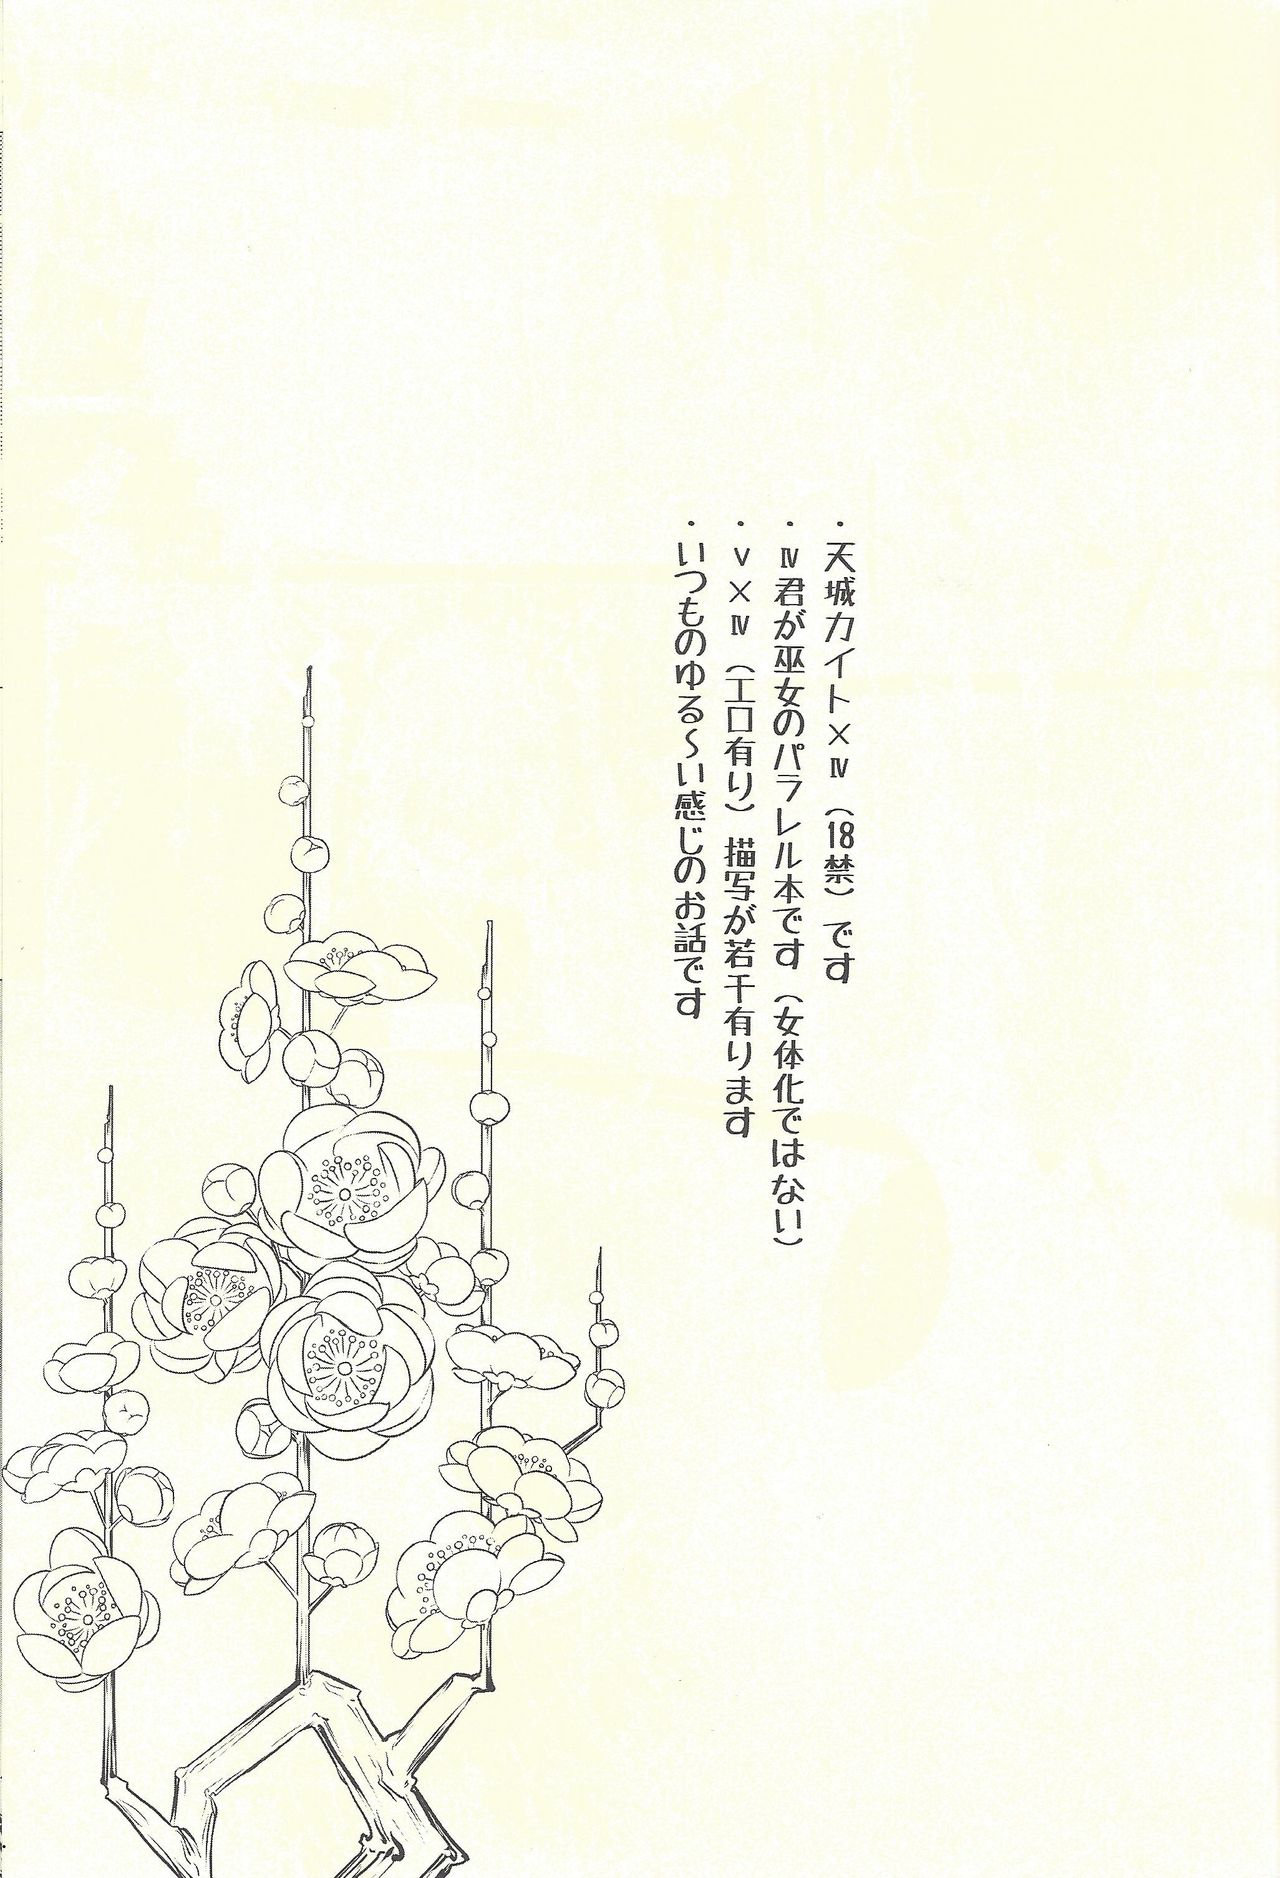 ・天城カイト×Ⅳ（18禁）です
・Ⅳ君が巫女のパラレル本です（女体化ではない）
・Ⅴ×Ⅳ（エロ有り）描写が若干有ります
・いつものゆる～い感じのお話です